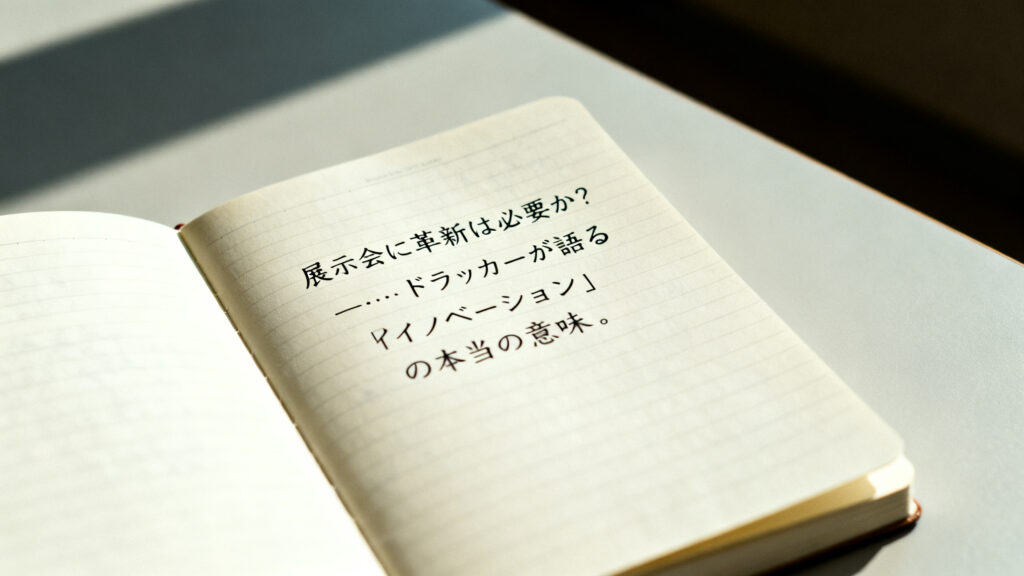 展示会に革新は必要か?
—‥‥ドラッカーが語る
「イノベーション」
の本当の意味。